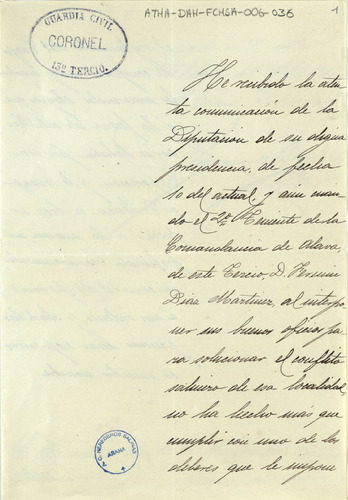 ATHA-DAH-FCHSA-006-036
1
GUARDIA CIVIL
CORONEL
13º TERCIO.
He recibido la aten
ta comunicación de la
Diputación de su digna
presidencia, de fecha
10 del actual, y aun man
do el 2º Teniente de la
Comandancia de Alava,
de este Tercio, D. Fermin
Diaz Martinez, al interpo
ner sus buenos oficios pa
ra solucionar el conflicto
salinero de esa localidad,
no ha hecho más que
cumplir con uno de los
deberes que le impone
A.C. HEREDEROS SALINAS
AÑANA